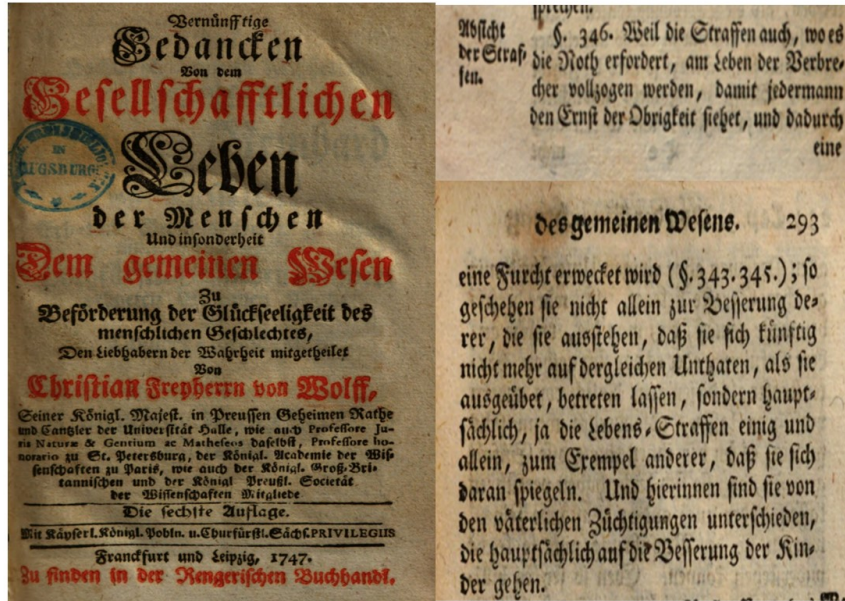 Vernünfftige
Gedancken
Von dem
Gesellschafftlichen
Leben
der Menschen
Und insonderheit
Dem gemeinen Wesen
Zu
Beförderung der Glückseeligkeit des
menschlichen Geschlechtes,
Den Liebhabern der Wahrheit mitgetheilet
Von
Christian Freyherrn von Wolff,
Seiner Königl. Majest. in Preussen Geheimen Rathe
und Cantzler der Universität Halle, wie auch Professore Ju-
ris Naturæ & Gentium ac Matheseos daselbst, Professore ho-
norario zu St. Petersburg, der Königl. Academie der Wis-
senschaften zu Paris, wie auch der Königl. Groß-Bri-
tannischen und der Königl Preußl. Societät
der Wissenschaften Mitgliede
Die sechste Auflage.
Mit Käyserl. Königl. Pohln. u. Churfürstl. Sächs. PRIVILEGIIS
Franckfurt und Leipzig, 1747.
Zu finden in der Rengerischen Buchhandl.
IN
AUGSBURG
sprechen.
Absicht
der Straf-
fen.
§. 346. Weil die Straffen auch, wo es
die Noth erfordert, am Leben der Verbre-
cher vollzogen werden, damit jedermann
den Ernst der Obrigkeit siehet, und dadurch
eine
des gemeinen Wesens. 293
eine Furcht erwecket wird (§. 343. 345.); so
geschehen sie nicht allein zur Besserung de-
rer, die sie ausstehen, daß sie sich künftig
nicht mehr auf dergleichen Unthaten, als sie
ausgeübet, betreten lassen, sondern haupt-
sächlich, ja die Lebens-Straffen einig und
allein, zum Exempel anderer, daß sie sich
daran spiegeln. Und hierinnen sind sie von
den väterlichen Züchtigungen unterschieden,
die hauptsächlich auf die Besserung der Kin-
der gehen.